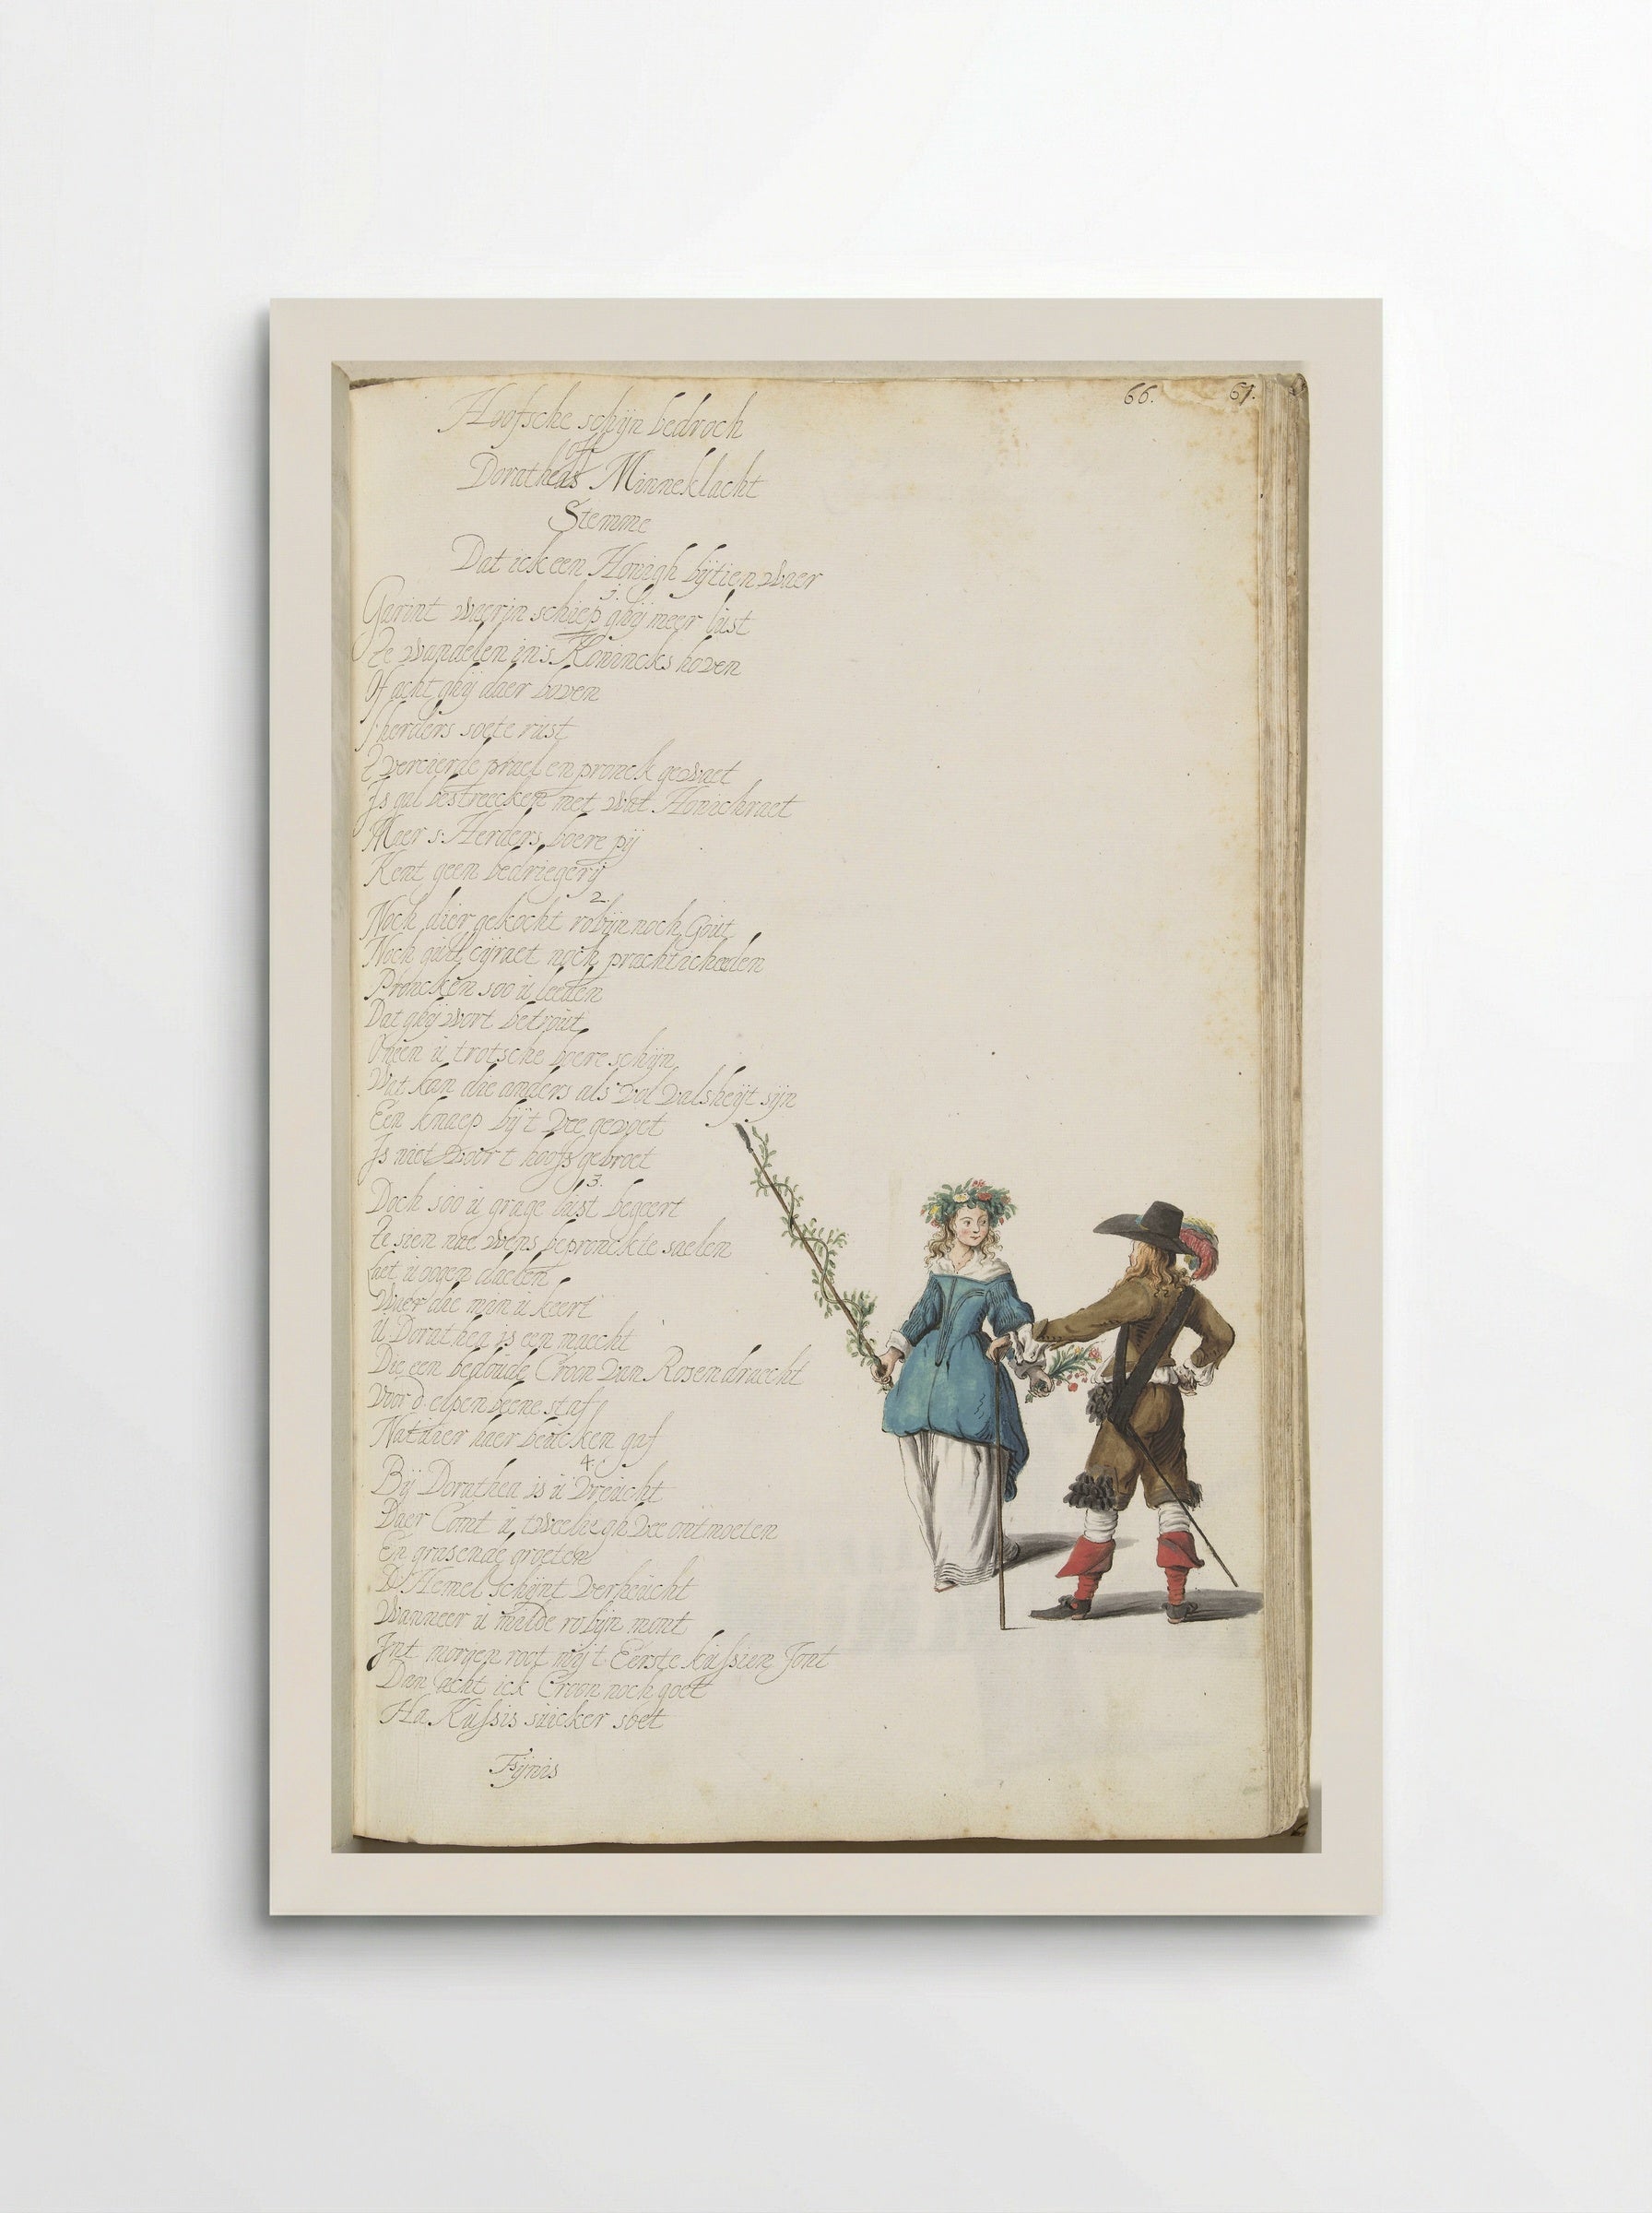 66. 67.
Hoofsche schijn bedroch
Of
Doratheas Minneklacht
Stemme
Dat ick een Honigh bijtien waer
waerin schiep ghij meer lust
Te wandelen in's Konincks hoven
Of acht ghij daer boven
s'herders soete rust
t vercierde prael en pronck gewaet
Is gal bestreecken met wat Honichraet
Maer s'Herders boere pij
Kent geen bedriegerij
2.
Noch dier gekocht robijn noch Gout
Noch gult cijraet noch
Proncken soo u leeden
Dat ghij wort betrout
O neen u trotsche boere schijn
Wat kan die anders als vol valsheijt sijn
Een knaep bij't vee gevoet
Is niet voor t hoofs gebroet
3.
Doch soo u grage lust begeert
Te sien nae wens bepronckte saelen
Laet u oogen daelen
Waer die min u keert
U Dorathea is een maecht
Die een bedoude Croon van Rosen draecht
Voor d'elpenbeene staf
Natuer haer beucken gaf
4.
Bij Dorathea is u vreucht
Daer Comt u t weeligh vee ontmoeten
En grasende groeten
D'Hemel schijnt verheucht
Wanneer u malde robijn mont
Int morgen root mij t Eerste kussien Jont
Dan acht ick Croon noch goet
Ha Kussis suicker soet
Fijnis